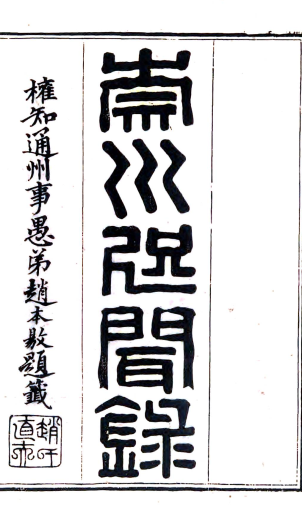 崇川咫聞錄
權知通州事愚弟趙本敭題籤